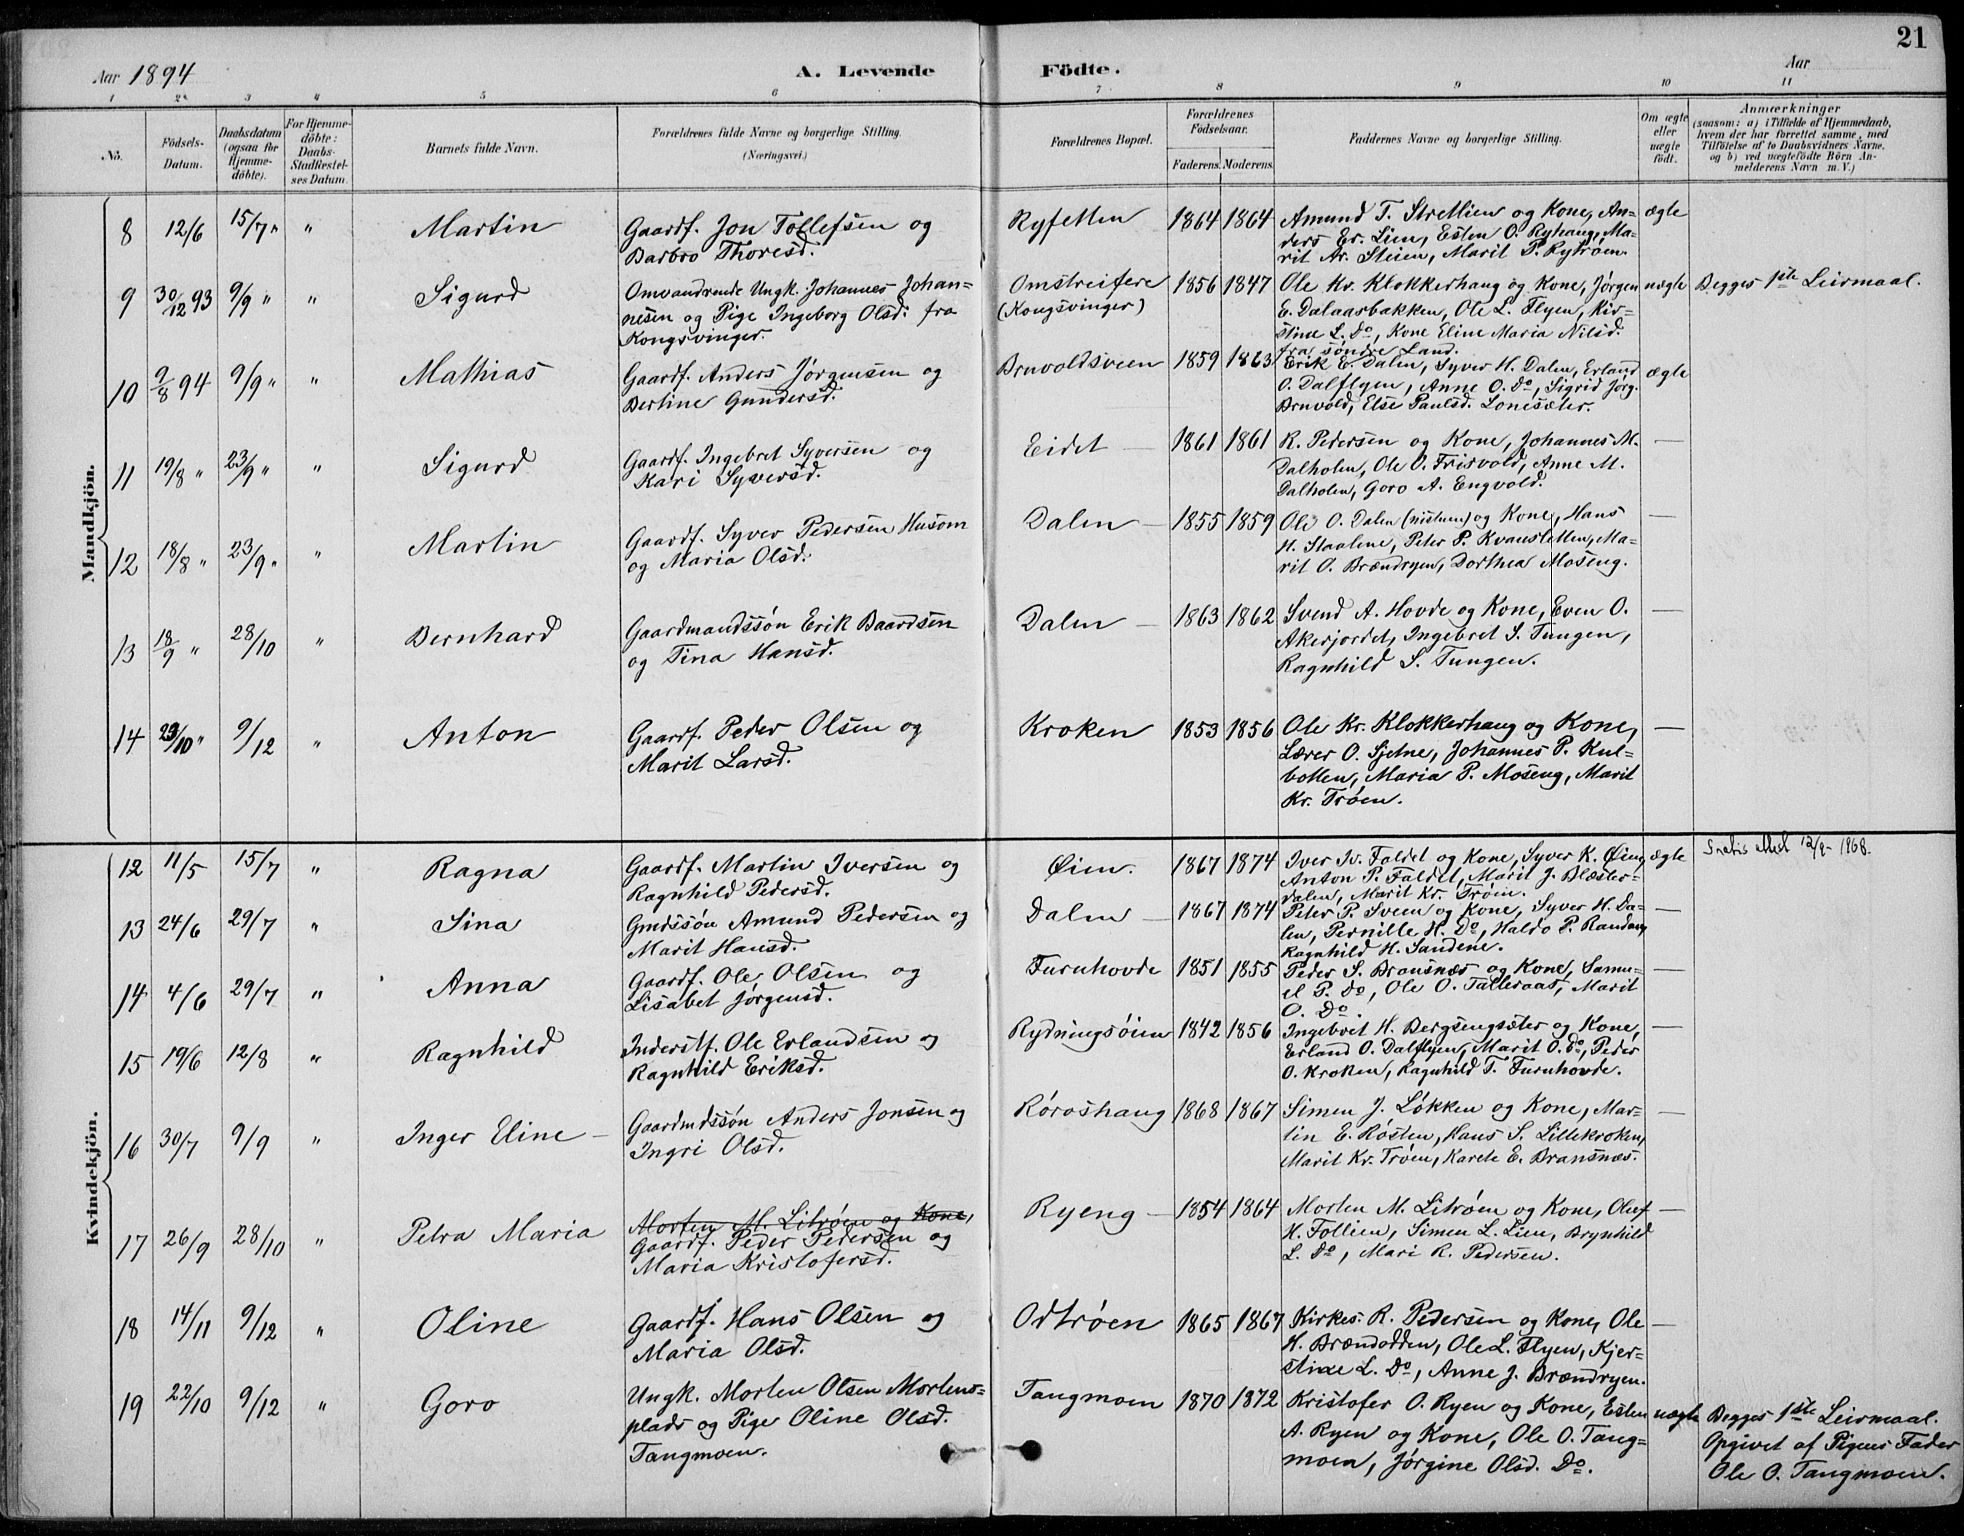 21
Aar 1894
A. Levende
Födte.
Aar
1 2 3 4 5 6 7 8 9 10 11
No.
Födsels-Datum.
Daabsdatum (ogsaa for Hjemme-döbte).
For Hjemme-döbte: Daabs-Stadfæstel-ses Datum.
Barnets fulde Navn.
Forældrenes fulde Navne og borgerlige Stilling. (Næringsvei.)
Forældrenes Bopæl.
Forældrenes Födselsaar.
Faderens. Moderens.
Faddernes Navne og borgerlige Stilling.
Om ægte eller uægte födt.
Anmærkninger
(saasom: a) i Tilfælde af Hjemmedaab,
hvem der har forrettet samme, med
Tilföielse af to Daabsvidners Navne,
og b) ved uægtefödte Börn An-
melderens Navn m. V.)
Mandkjön.
8 12/6 15/7 " " Martin Gaardf. Jon Tollefsen og Ryfetten 1864 1864 Amund T. Strellien og Kone, An- ægte
Barbro Thoresd. ders Er. Lien, Esten O. Ryhaug, Ma-
rit Ar. Steien, Marit P. Rytrøen.
9 30/12 93 9/9 " " Sigurd Omvandrende Ungk. Johannes Johan- Omstreifere 1856 1847 Ole Kr. Klokkerhaug og Kone, Jørgen uægte Begges 1ste Leirmaal.
nesen og Pige Ingeborg Olsd. fra (Kongsvinger) E. Dalaasbakken, Ole L. Flyen, Kir-
Kongsvinger. stine L. Do, Kone Eline Maria Nilsd.
fra søndre Land.
10 9/8 94 9/9 " " Mathias Gaardf. Anders Jørgensen og Bruvoldsveen 1859 1863 Erik E. Dalen, Syver H. Dalen, Erland ægte
Bertine Gundersd. O. Dalflyen, Anne O. Do, Sigrid Jørg.
Bruvold, Else Paulsd. Lonesæter.
11 19/8 " 23/9 " " Sigurd Gaardf. Ingebret Syversen og Eidet — 1861 1861 R. Pedersen og Kone, Johannes M. —
Kari Syversd. Dalholen, Ole O. Frisvold, Anne M.
Dalholen, Goro A. Engvold.
12 18/8 " 23/9 " " Martin Gaardf. Syver Pedersen Husom Dalen — 1855 1859 Ole O. Dalen (nistuen) og Kone, Hans —
og Maria Olsd. H. Staalene, Peter P. Kvansletten, Ma-
rit O. Brændryen, Dorthea Moseng.
13 18/9 " 28/10 " Bernhard Gaardmandssön Erik Baardsen Dalen — 1863 1862 Svend A. Hovde og Kone, Even O. —
og Tina Hansd. Akerjordet, Ingebret S. Tungen,
Ragnhild S. Tungen.
14 23/10 " 9/12 " Anton Gaardf. Peder Olsen og Kroken 1853 1856 Ole Kr. Klokkerhaug og Kone, —
Marit Larsd. Lærer O. Sjetne, Johannes P. Kul-
botten, Maria P. Moseng, Marit
Kr. Trøen.
Kvindekjön.
12 11/5 15/7 " Ragna Gaardf. Martin Iversen og Øien. 1867 1874 Iver Iv. Faldet og Kone, Syver K. Øien, ægte 12/9-1968.
Ragnhild Pedersd. Anton P. Faldet, Marit J. Blæster-
dalen, Marit Kr. Trøen.
13 24/6 29/7 " Sina Gmdssön Amund Pedersen og Dalen — 1867 1874 Peter P. Sveen og Kone, Syver H. Da- —
Marit Hansd. len, Pernille H. Do, Haldo P. Randang,
Ragnhild H. Sandene.
14 4/6 29/7 " Anna Gaardf. Ole Olsen og Furuhovde 1851 1855 Peder S. Bransnæs og Kone, Samu- —
Lisabet Jørgensd. el P. Do, Ole O. Talleraas, Marit
O. Do.
15 19/6 12/8 " Ragnhild Inderstf. Ole Erlandsen og Rydningsøien 1842 1856 Ingebret H. Bergsengsæter og Kone, —
Ragnhild Eriksd. Erland O. Dalflyen, Marit O. Do, Peder
O. Kroken, Ragnhild T. Furuhovde.
16 30/7 9/9 " Inger Eline — Gaardmdssön Anders Jonsen og Røroshaug 1868 1867 Simen J. Løkken og Kone, Mar- —
Ingri Olsd. tin E. Røsten, Hans S. Lillekroken,
Marit Kr. Trøen, Karete E. Bransnæs.
17 26/9 28/10 " Petra Maria Morten M. Litrøen og Kone, Ryeng — 1854 1864 Morten M. Litrøen og Kone, Oluf —
Gaardf. Peder Pedersen og H. Follien, Simen L. Lien, Brynhild
Maria Kristofersd. L. Do, Mari R. Pedersen.
18 14/11 9/12 " Oline Gaardf. Hans Olsen og Odtrøen 1865 1867 Kirkes. R. Pedersen og Kone, Ole —
Maria Olsd. H. Brændodden, Ole L. Flyen, Kjer-
stine L. Do, Anne J. Brændryen.
19 22/10 9/12 " Goro Ungk. Morten Olsen Mortens- Tangmoen 1870 1872 Kristofer O. Ryen og Kone, Esten uægte Begges 1ste Leirmaal.
plads og Pige Oline Olsd. A. Ryen og Kone, Ole O. Tang- Opgivet af Pigens Fader
Tangmoen. moen, Jørgine Olsd. Do. Ole O. Tangmoen.